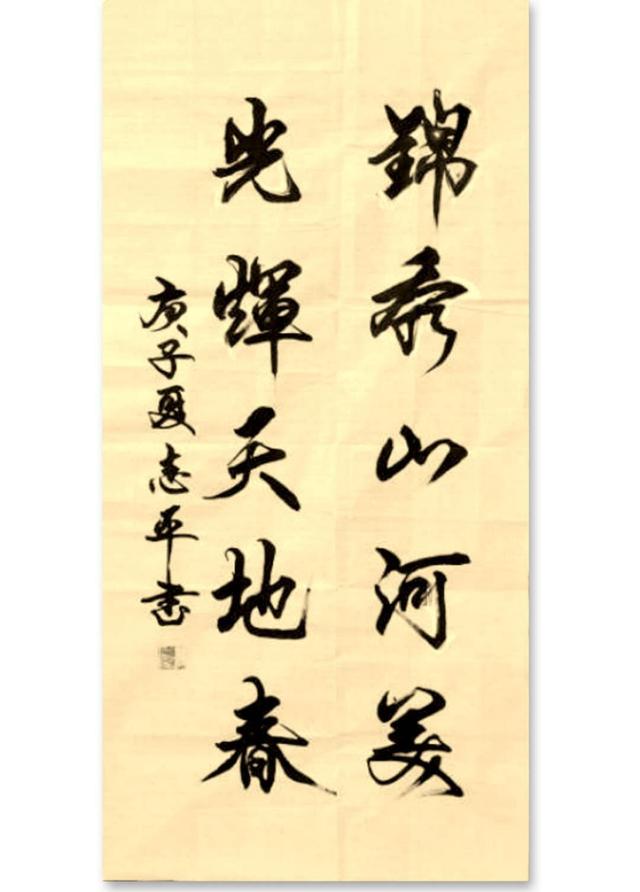 錦秀山河美
光輝天地春
庚子夏志平書